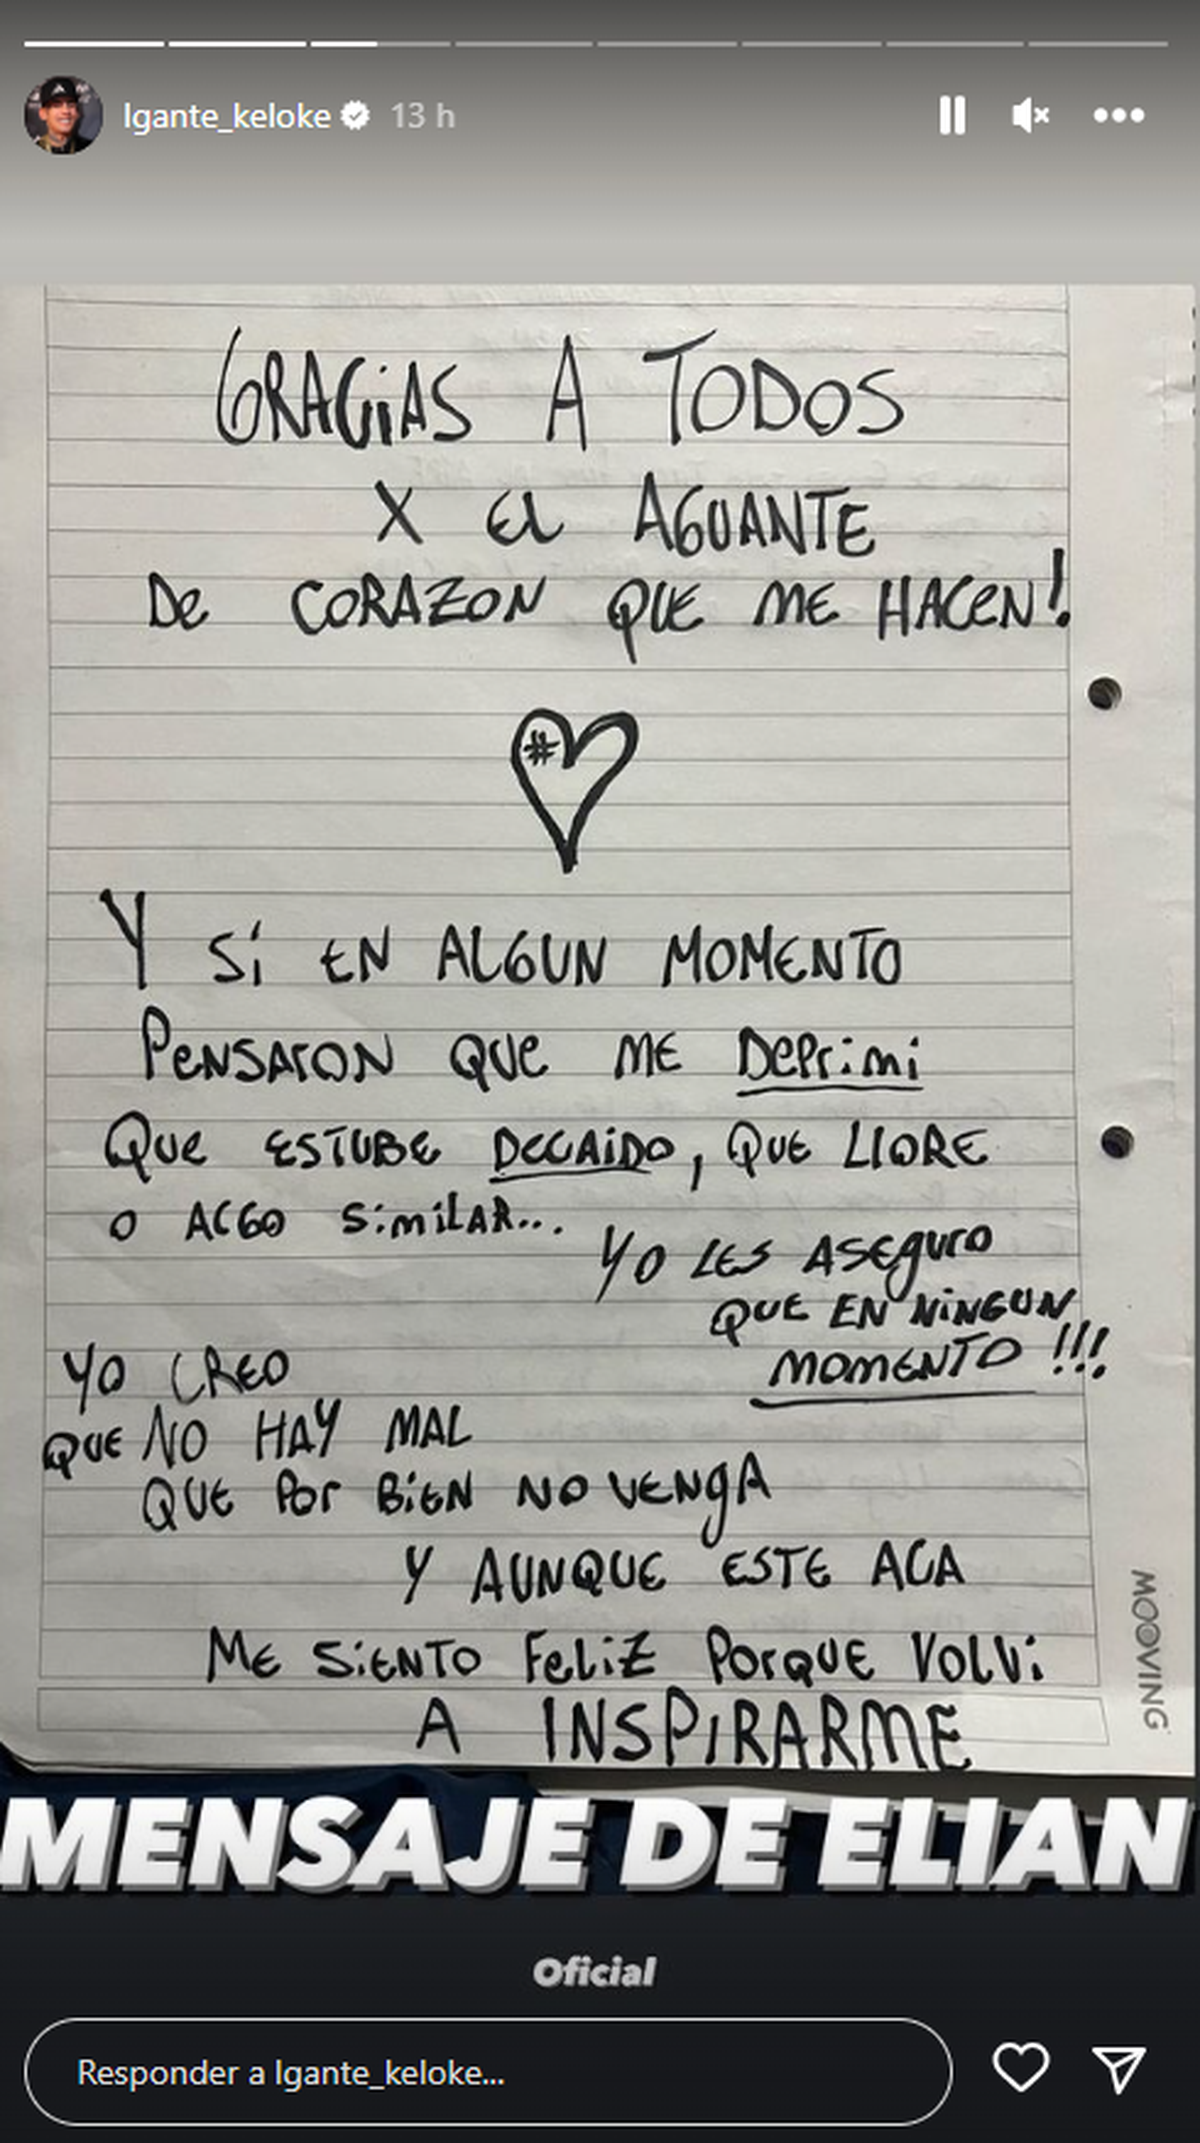 lgante_keloke 13 h
GRACiAS A TODOS
X EL AGUANTE
De CORAZON QUE ME HACEN!
#
Y Sí EN ALGUN MOMENTO
PeNSArON QUe ME Deprimi
QUe ESTUBE DECAiDO, QUE LlORE
O ALGO SimiLAR...
YO LES ASEguro
QUE EN NiNGUN
MOMENTO !!!
YO CREO
QUE NO HAY MAL
QUE Por BiEN NO VENgA
Y AUNQUE ESTE ACA
ME SiENTO FeLiZ PorQUE VOLVi
A INSPiRARME
MOOVING
MENSAJE DE ELIAN
Oficial
Responder a lgante_keloke...